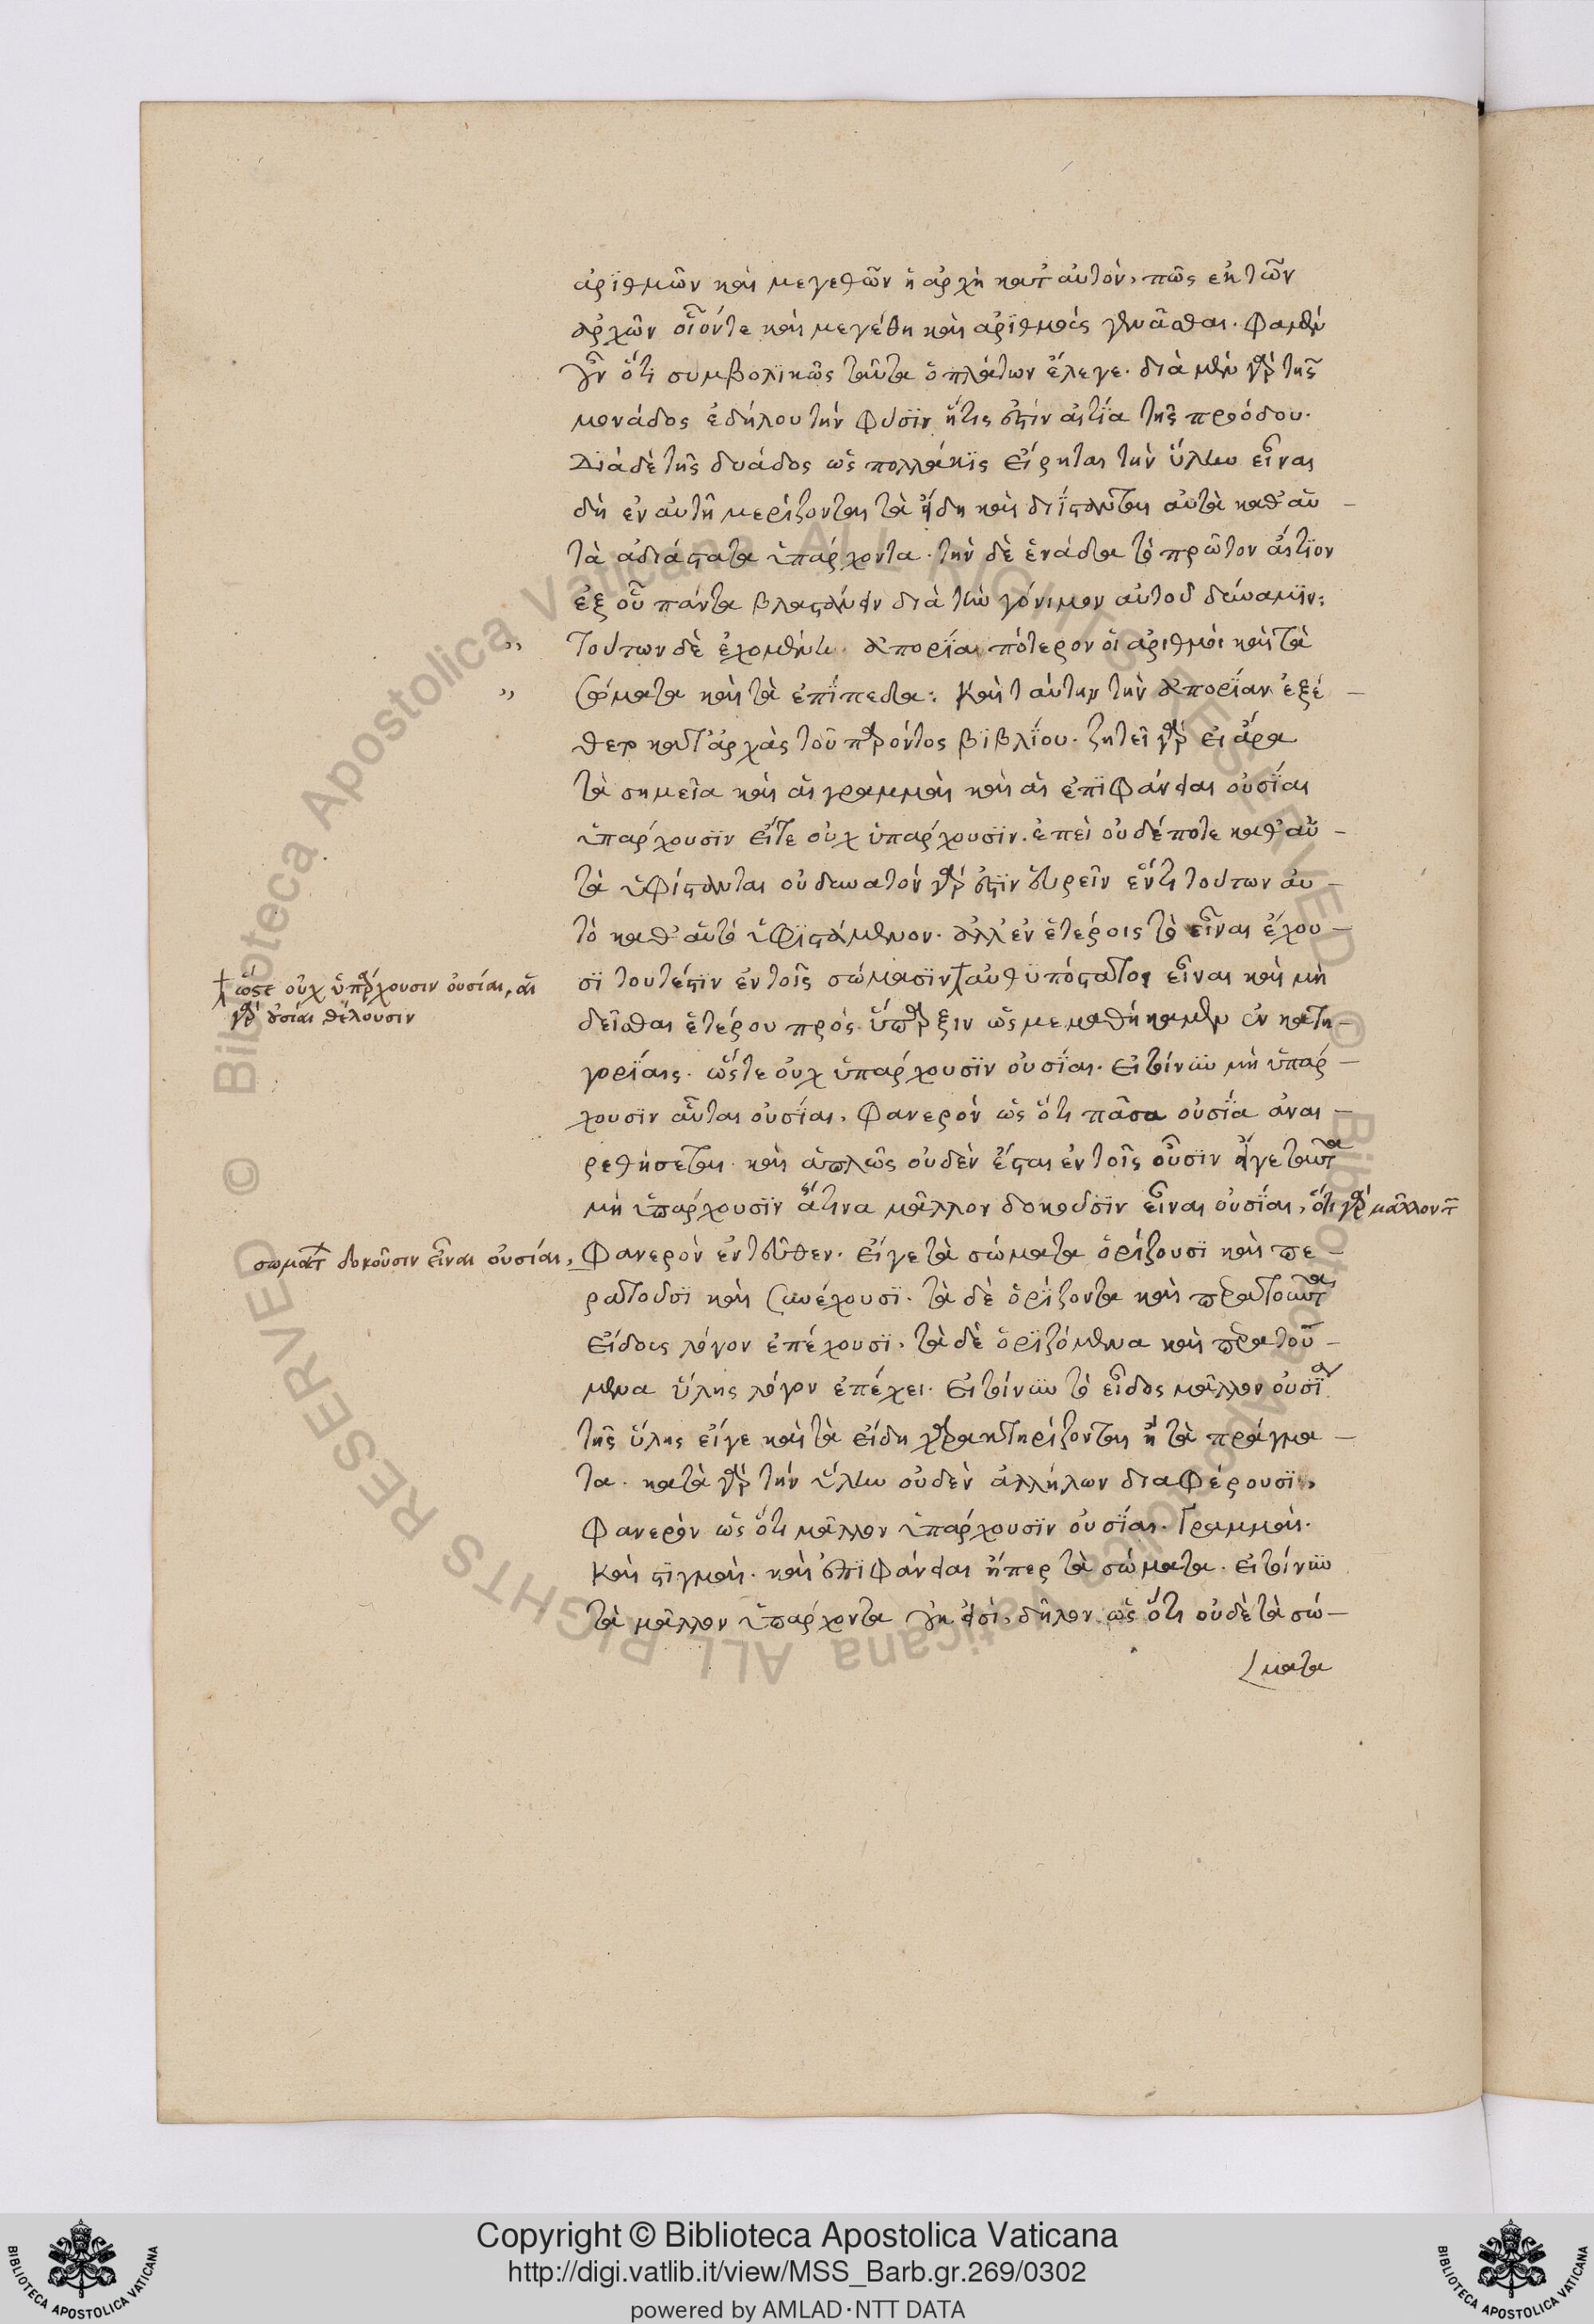 ἀρϊθμῶν καὶ μεγεθῶν ἡ ἀρχὴ κατ' αὐτὸν, πῶς ἐκ τῶν
ἀρχῶν οἷόντε καὶ μεγέθη καὶ ἀρϊθμοὺς γενᾶσθαι. Φαμὲν
οὖν ὅτι συμβολϊκῶς ταῦτα ὁ πλάτων ἔλεγε. διὰ μὲν γὰρ τῆς
μονάδος ἐδήλου τὴν φύσϊν ἥτις ἐστὶν αἰτΐα τῆς προόδου.
Διὰ δὲ τῆς δυάδος ὡς πολλάκϊς εἴρηται τὴν ὕλην εἶναι
δὴ ἐν αὐτῇ μερίζονται τὰ εἴδη καὶ διΐστανται αὐτὰ καθ' αὑ-
τὰ ἀδιάστατα ὑπάρχοντα. τὴν δὲ ἑνάδα τὸ πρῶτον αἴτϊον
ἐξ οὗ πάντα βλαστάνειν διὰ τὴν γόνιμον αὐτοῦ δύναμϊν:
,, Τούτων δὲ ἐχομένη ἀπορΐαι πότερον οἱ ἀριθμοὶ καὶ τὰ
,, σώματα καὶ τὰ ἐπΐπεδα: Καὶ ταύτην τὴν ἀπορΐαν ἐξέ-
θετο κατ' ἀρχὰς τοῦ παρόντος βϊβλΐου. ζητεῖ γὰρ εἰ ἄρα
τὰ σημεῖα καὶ αἱ γραμμαὶ καὶ αἱ ἐπϊφάνειαι οὐσΐαι
ὑπάρχουσϊν εἴτε οὐχ ὑπάρχουσϊν. ἐπεὶ οὐδέποτε καθ' αὑ-
τὰ ὑφίστανται οὐ δυνατὸν γὰρ ἐστϊν εὑρεῖν ἕν τι τούτων αὐ-
τὸ καθ' αὑτὸ ὑφϊστάμενον. ἀλλ' ἐν ἑτέροις τὸ εἶναι ἔχου-
σϊ τουτέστϊν ἐν τοῖς σώμασϊν αὐθϋπόστατοι εἶναι καὶ μὴ
ὥστε οὐχ ὑπάρχουσιν οὐσίαι, αἱ
γὰρ οὐσίαι θέλουσιν
δεῖσθαι ἑτέρου πρὸς ὕπαρξιν ὡς μεμαθήκαμεν ἐν κατη-
γορΐαις. ὥστε οὐχ ὑπάρχουσϊν οὐσΐαι. εἰ τοίνυν μὴ ὑπάρ-
χουσϊν αὗται οὐσΐαι, φανερὸν ὡς ὅτι πᾶσα οὐσΐα ἀναι-
ρεθήσεται. καὶ ἁπλῶς οὐδὲν ἔσται ἐν τοῖς οὖσϊν εἴγε ταῦτα
μὴ ὑπάρχουσϊν ἅτινα μᾶλλον δοκοῦσϊν εἶναι οὐσΐαι, ὅτι γὰρ μᾶλλον τ
σωμάτ δοκοῦσιν εἶναι οὐσίαι, φανερὸν ἐντεῦθεν. εἴγε τὰ σώματα ὁρίζουσϊ καὶ πε-
ρατοῦσϊ καὶ συνέχουσϊ. τὰ δὲ ὁρίζοντα καὶ περατοῦντα
εἴδους λόγον ἐπέχουσϊ, τὰ δὲ ὁριζόμενα καὶ περατού-
μενα ὕλης λόγον ἐπέχει. εἰ τοίνυν τὸ εἶδος μᾶλλον οὐσΐα
τῆς ὕλης εἴγε κατὰ τὰ εἴδη χαρακτηρίζονται τὰ πράγμα-
τα. κατὰ γὰρ τὴν ὕλην οὐδὲν ἀλλήλων διαφέρουσϊ,
φανερὸν ὡς ὅτι μᾶλλον ὑπάρχουσϊν οὐσΐαι. Γραμμαὶ.
Καὶ στϊγμαὶ. καὶ ἐπϊφάνειαι ἤπερ τὰ σώματα. εἰ τοίνυν
τὰ μᾶλλον ὑπάρχοντα οὐκ εἰσὶ, δῆλον ὡς ὅτι οὐδὲ τὰ σώ-
ματα
Biblioteca Apostolica Vaticana ALL RIGHTS RESERVED ©
Biblioteca Apostolica Vaticana ALL RIGHTS RESERVED ©
BIBLIOTECA APOSTOLICA VATICANA
Copyright © Biblioteca Apostolica Vaticana
http://digi.vatlib.it/view/MSS_Barb.gr.269/0302
powered by AMLAD·NTT DATA
BIBLIOTECA APOSTOLICA VATICANA